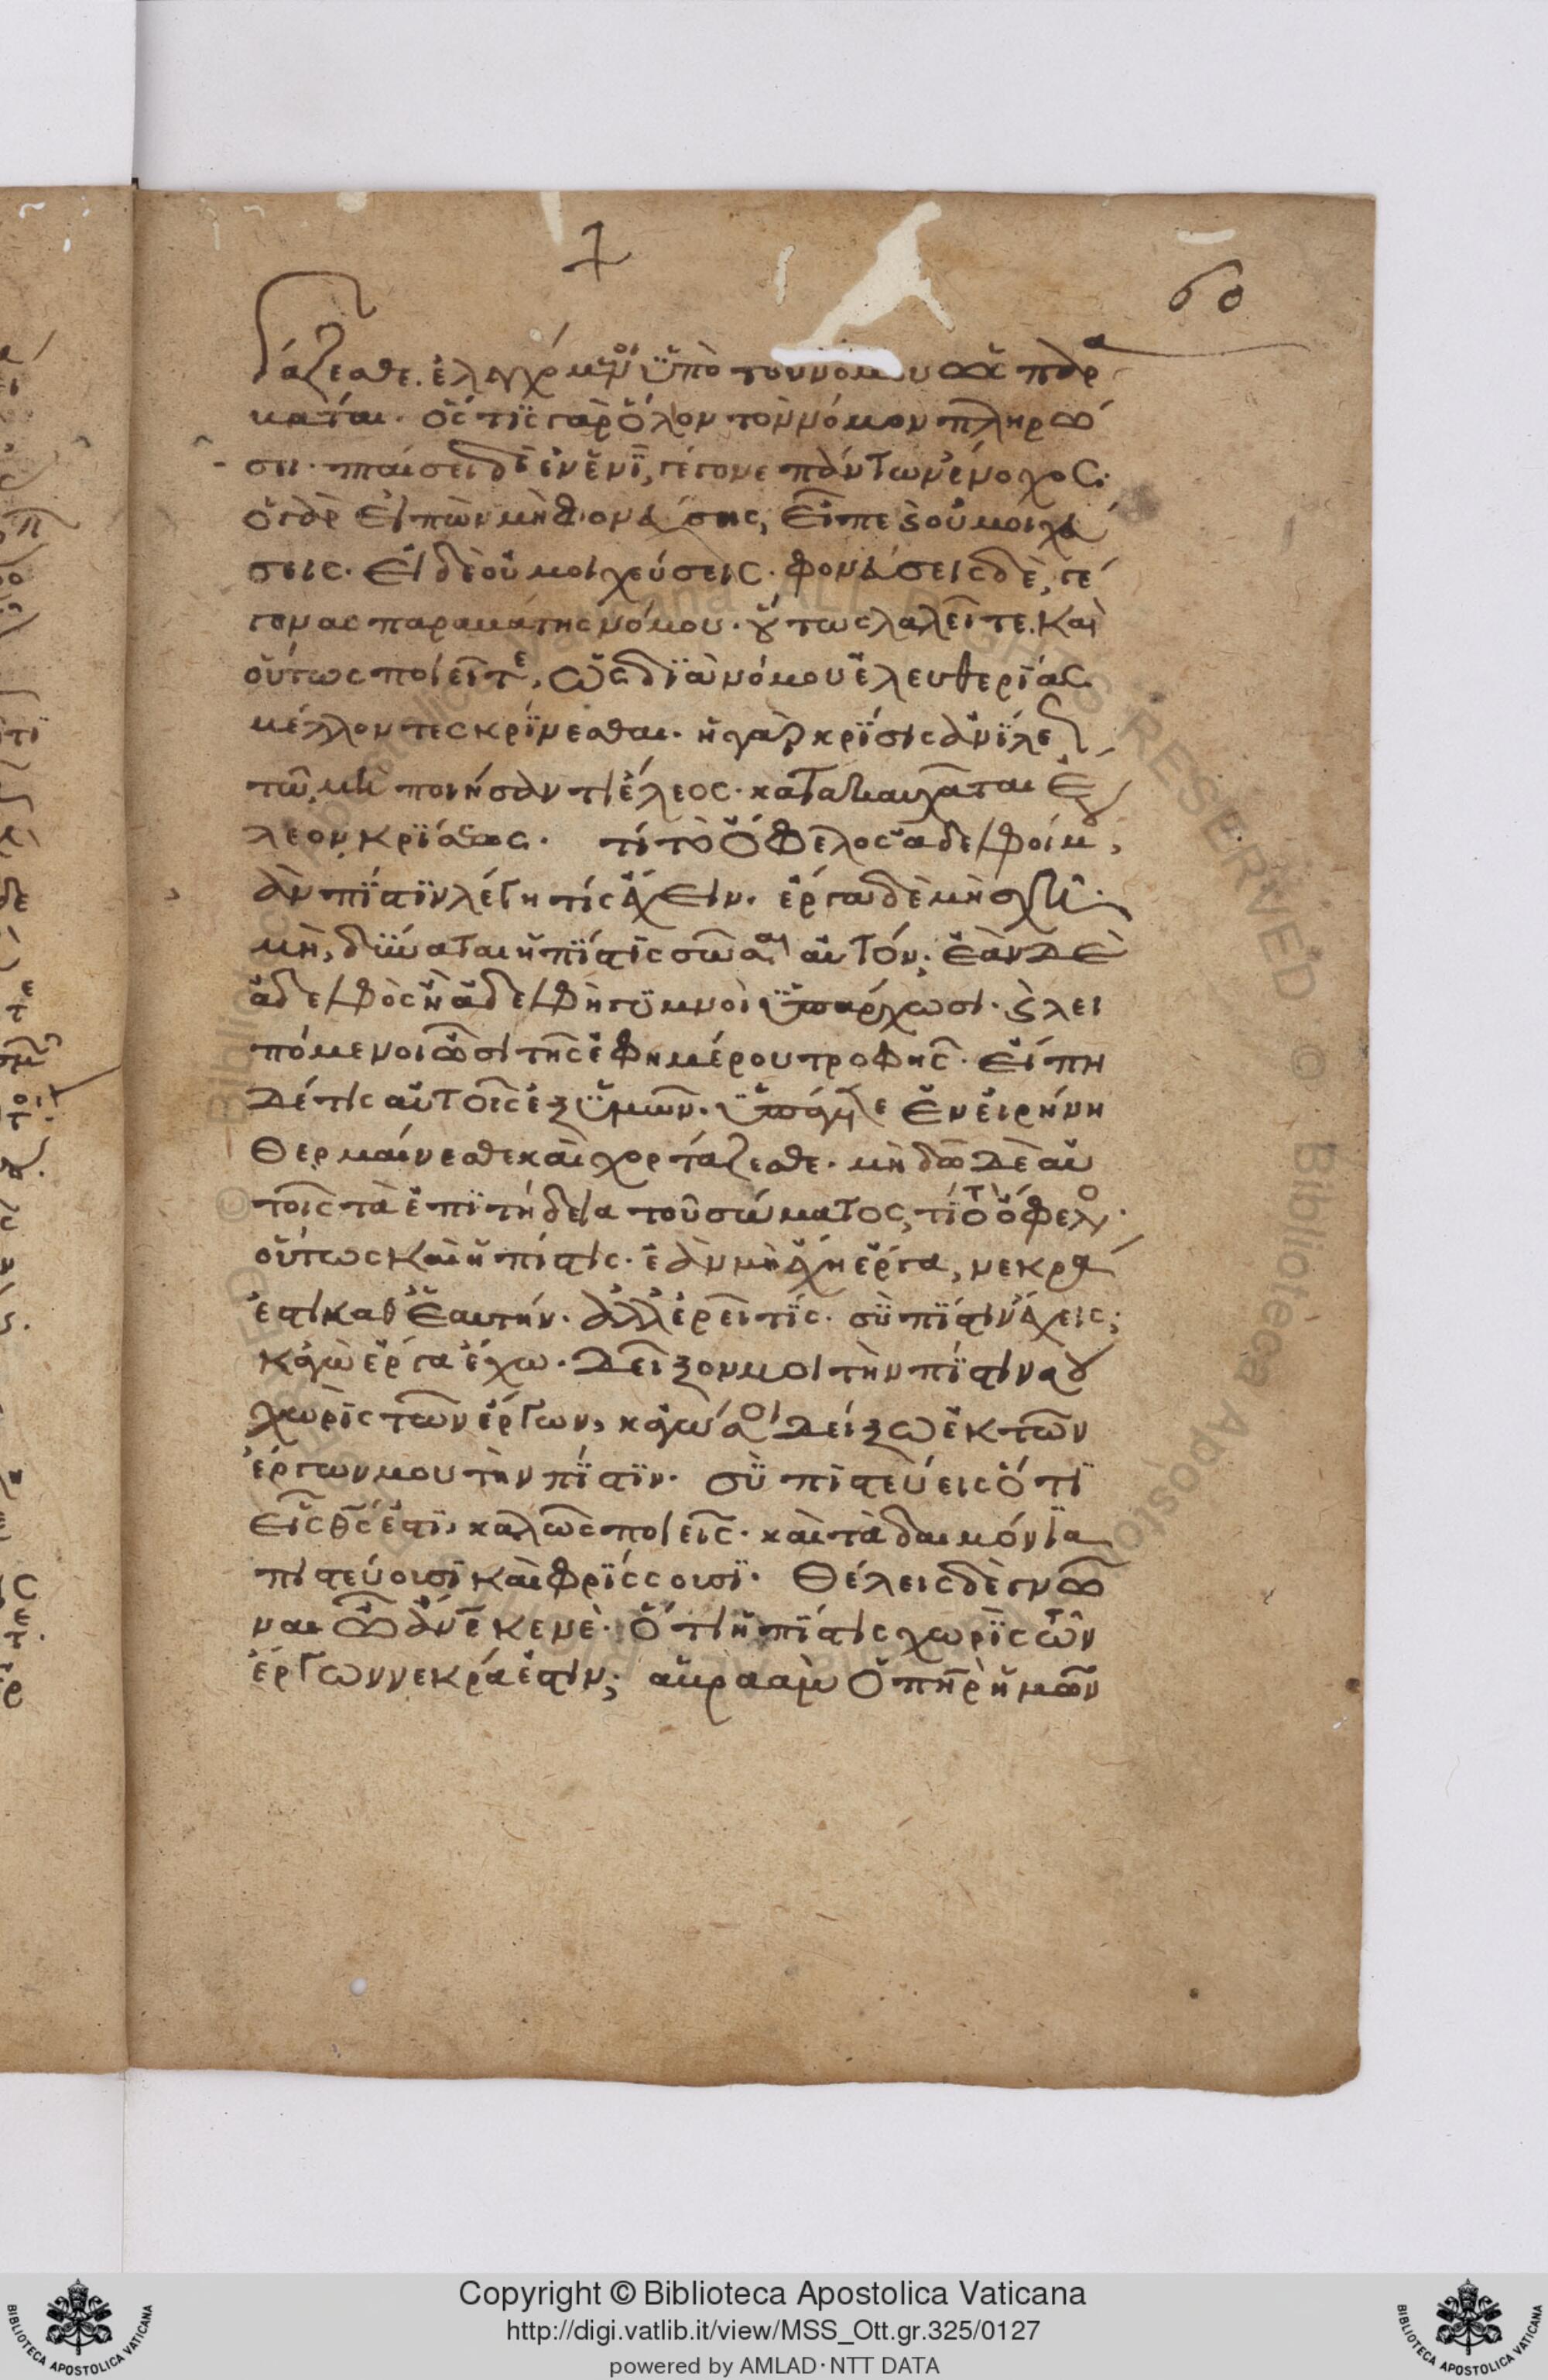 60
γάζεσθε. ἐλεγχόμενοι ὑπὸ τοῦ νόμου ὡς παρα
βάται. ὅς τις γὰρ ὅλον τὸν νόμον πληρώ
σει. πταίσει δὲ ἐν ἑνὶ, γέγονε πάντων ἔνοχος.
ὁ γὰρ εἰπὼν μὴ φονεύσης, εἶπε καὶ οὐ μοιχεύ
σεις. εἰ δὲ οὐ μοιχεύσεις. φονεύσεις δὲ, γέ
γονας παραβάτης νόμου. οὕτως λαλεῖτε. καὶ
οὕτως ποιεῖτε, ὡς διὰ νόμου ἐλευθερίας
μέλλοντες κρίνεσθαι. ἡ γὰρ κρίσις ἀνίλεως
τῶ μὴ ποιήσαντι ἔλεος. κατακαυχᾶται ἔ
λεον κρίσεως. τί τὸ ὄφελος ἀδελφοί μου,
ἐὰν πίστιν λέγη τίς ἔχειν. ἔργα δὲ μὴ ἔχη.
μὴ, δύναται ἡ πίστις σῶσαι αὐτόν; ἐὰν δὲ
ἀδελφὸς ἢ ἀδελφὴ γυμνοὶ ὑπάρχωσι. καὶ λει
πόμενοι ὦσι τῆς ἐφημέρου τροφῆς. εἴπη
δέ τις αὐτοῖς ἐξ ὑμῶν. ὑπάγετε ἐν εἰρήνη
θερμαίνεσθε καὶ χορτάζεσθε. μὴ δῶ δὲ αὐ
τοῖς τὰ ἐπιτήδεια τοῦ σώματος, τί τὸ ὄφελος.
οὕτως καὶ ἡ πίστις. ἐὰν μὴ ἔχη ἔργα, νεκρά
ἐστι καθ ἑαυτήν. ἀλλ ἐρεῖ τίς. σὺ πίστιν ἔχεις;
κἀγὼ ἔργα ἔχω. δεῖξον μοι τὴν πίστιν σου
χωρὶς τῶν ἔργων, κἀγώ σοι δείξω ἐκ τῶν
ἔργων μου τὴν πίστιν. σὺ πιστεύεις ὅτι
εἷς θς ἐστι, καλῶς ποιεῖς. καὶ τὰ δαιμόνια
πιστεύουσι καὶ φρίσσουσι. θέλεις δὲ γνῶ
ναι ὦ ἄνε κενὲ. ὅτι ἡ πίστις χωρὶς τῶν
ἔργων νεκρά ἐστιν; ἀβραὰμ ὁ πηρ ἡμῶν
Copyright © Biblioteca Apostolica Vaticana
http://digi.vatlib.it/view/MSS_Ott.gr.325/0127
powered by AMLAD·NTT DATA